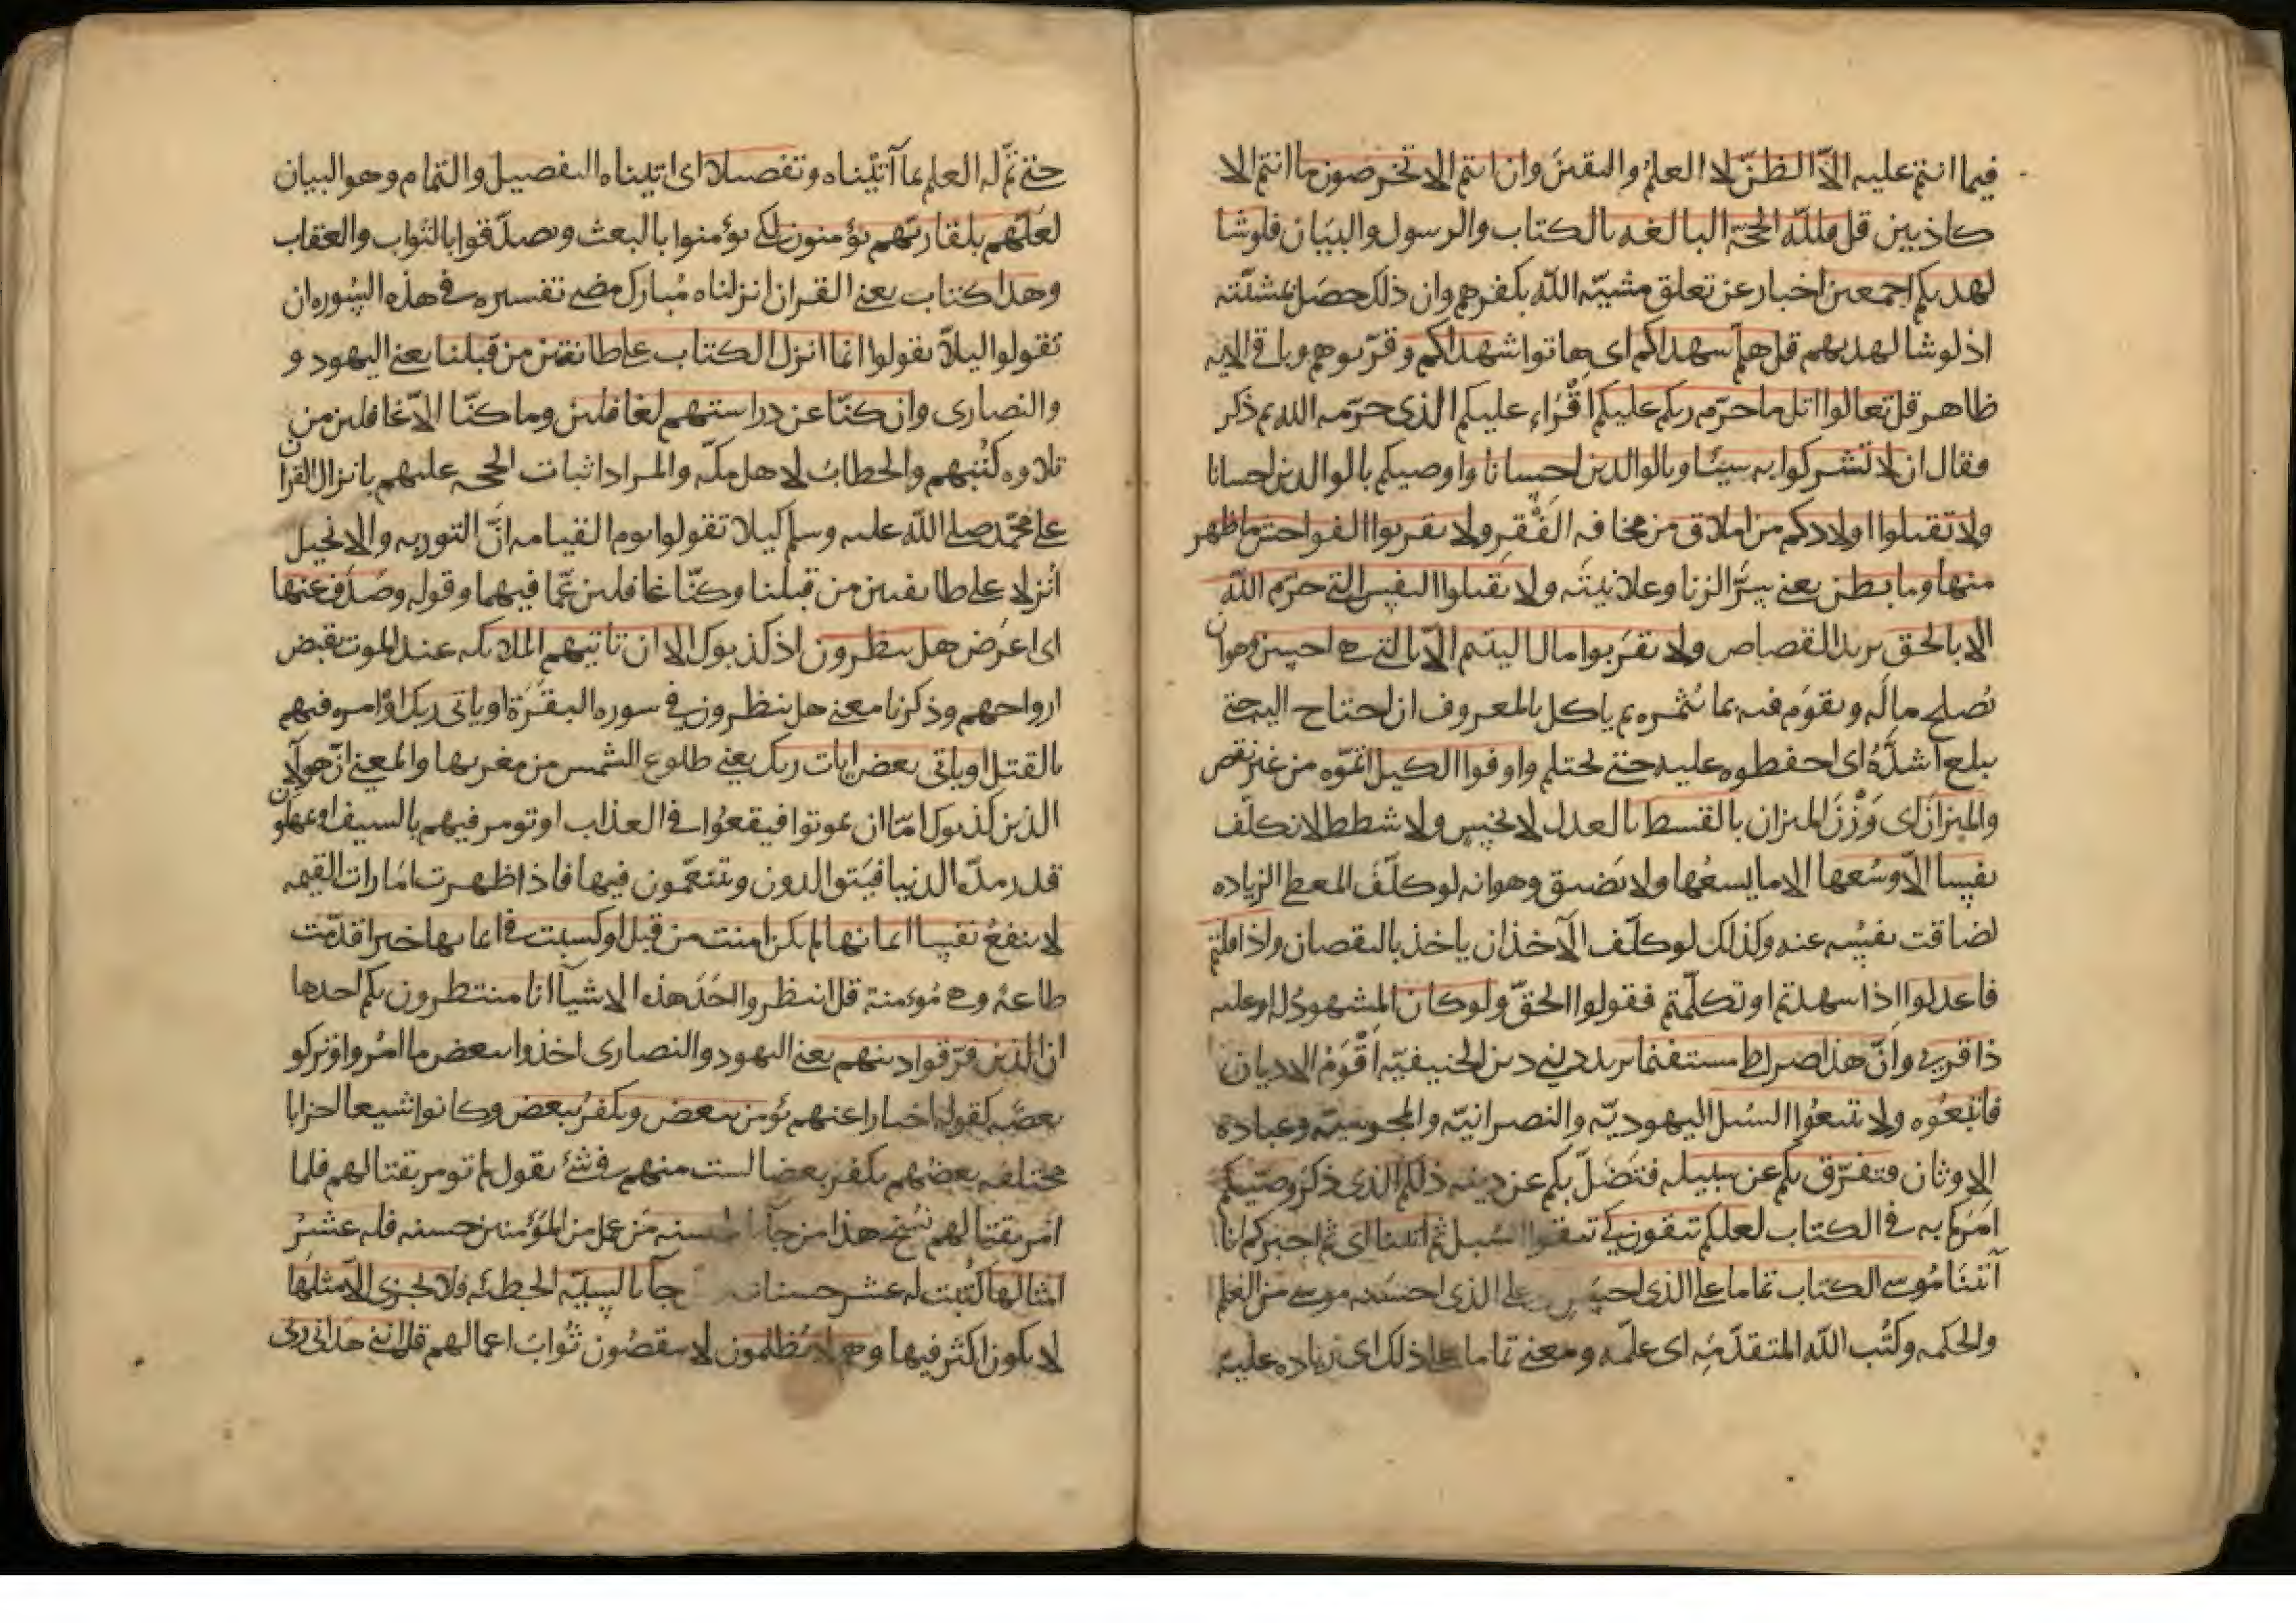 فيما انتم عليه الّا الظنّ لا العلمُ واليقينَ وان انتم الا تخرصون ما انتم الا
كاذبين قل فللّه الحجة البالغه بالكتاب والرسول والبيَان فلوشا
لهديكم اجمعين اخبار عن تعلق مشيّه اللّه بكفرهم وان ذلك حصَل بمشئته
اذ لو شا لهديهم قل هلمّ شهداكم اى هاتوا شهداكم وقرّبوهم وباقى الايه
ظاهر قل تعالوا اتل ما حرّم ربكم عليكم اقْرَاء عليكم الذى حرّمه الله ثم ذكر
فقال ان لا تشركوا به شيئا وبالوالدين احسانا واوصيكم بالوالدين احسانا
ولا تقتلوا اولادكم من املاق من مخافه الفَقْر ولا تقربوا الفواحش ما ظهر
منها وما بطن يعنى سِرَّ الزنا وعلانيتَه ولا تقتلوا النفس التى حرّم اللّه
الا بالحق يريد القصاص ولا تقرَبوا مال اليتيم الّا بالتى هى احسن وهو ان
يُصلح مالَه ويقومَ فيه بما يُثمره ثم ياكل بالمعروف ان احتاج اليه حتى
يبلغ اشدَّهُ اى احفظوه عليه حتى يحتلم واوفوا الكيل اتمّوه من غير نقص
والميزانَ اى وَزْنَ الميزان بالقسط بالعدل لا بخس ولا شطط لا نكلّف
نفسا الّا وسُعها الا ما يسعُها ولا تضيق وهو انه لو كلّفَ المعطى الزياده
لضاقت نفسُه عنه وكذلك لو كلّف الآخذ ان ياخذ بالنقصان واذا قلتم
فاعدلوا اذا شهدتم او تكلّمتم فقولوا الحقّ ولو كان المشهودُ له او عليه
ذا قربى وانّ هذا صراطى مستقيما يريد دينى دين الحنيفيّه اقْوَمُ الاديان
فاتبعُوه ولا تتبعُوا السُبل اليهوديّه والنصرانيّه والمجوسيّه وعباده
الاوثان فتفرّق بكم عن سبيله فتضلّ بكم عن دينه ذلكم الذى ذكر وصّيكم
امرَكم به فى الكتاب لعلكم تتقون كى تتقوا السُبل ثم اتينا اى ثم اخبركم انا
آتينَا مُوسى الكتاب تماما على الذى احسَن على الذى احسنه موسى من العِلم
والحكمه وكتُب اللّه المتقدّمه اى علمَه ومعنى تماما على ذلك اى زياده عليه
حتى تمّ له العلم بما آتَيْناه وتفصيلا اى اتيناه التفصيل والتمام وهو البيان
لعلّهم بلقا ربّهم يؤمنون لكى يؤمنوا بالبعث ويصدّقوا بالثواب والعقاب
وهذا كتاب يعنى القران انزلناه مُبارك مضى تفسيره فى هذه السُوره ان
تقولوا ليلّا تقولوا انما انزل الكتاب على طائفتين من قبلنا يعنى اليهود و
والنصارى وان كنّا عن دراستهم لغافلين وما كنّا الّا غافلين من
تلاوه كُتُبهم والخطابُ لاهل مكّه والمراد اثبات الحجه عليهم بانزال القران
على محمّد صلى اللّه عليه وسلم كيلا تقولوا يوم القيامه انَّ التوريه والانجيل
اُنزلا على طائفتين من قبلنا وكنّا غافلين عمّا فيهما وقوله وصدَف عنها
اى اعرض هل ينظرون اذ كذبوك الا ان تاتيهم الملائكه عند الموت تقبض
ارواحهم وذكرنا معنى هل ينظرون فى سوره البقَرَة او ياتى ربك او امره فيهم
بالقتل او ياتى بعض ايات ربك يعنى طلوع الشمس من مغربها والمعنى انّ هولآء
الذين كذبوك امّا ان يموتوا فيقعُوا فى العذاب او تومر فيهم بالسيف او يمهلون
قدر مدّه الدنيا فيَتوالدون ويتنعّمون فيها فاذا ظهرت امَارات القيمه
لا ينفعُ نفسا ايمانها لم يكن امنت من قبل او كسبت فى ايمانها خيرا قدّمت
طاعةً وهى مُومنة قل انتظروا احَدَ هذه الاشيآ انا منتظرون بكم احدها
ان الذين فرّقوا دينهم يعنى اليهود والنصارى اخذوا ببعض ما امُروا وتركو
بعضَه كقوله اخبارا عنهم نؤمن ببعض ونكفرُ ببعض وكانوا شيعا احزابا
مختلفه بعضُهم يكفر بعضا لست منهم فى شئ يقول لم تومر بقتالهم فلما
امر بقتالهم نُسخ هذا من جآ بالحسنه مَن عمل من المؤمنين حسنه فله عشرُ
امثالها كُتبت له عشر حسنات جآ بالسيّه الخطئه فلا يجزى الّا مثلها
لا يكون اكثر فيها وهم لا يُظلمون لا ينقصُون ثوابَ اعمالهم قل اننى هدانى ربى